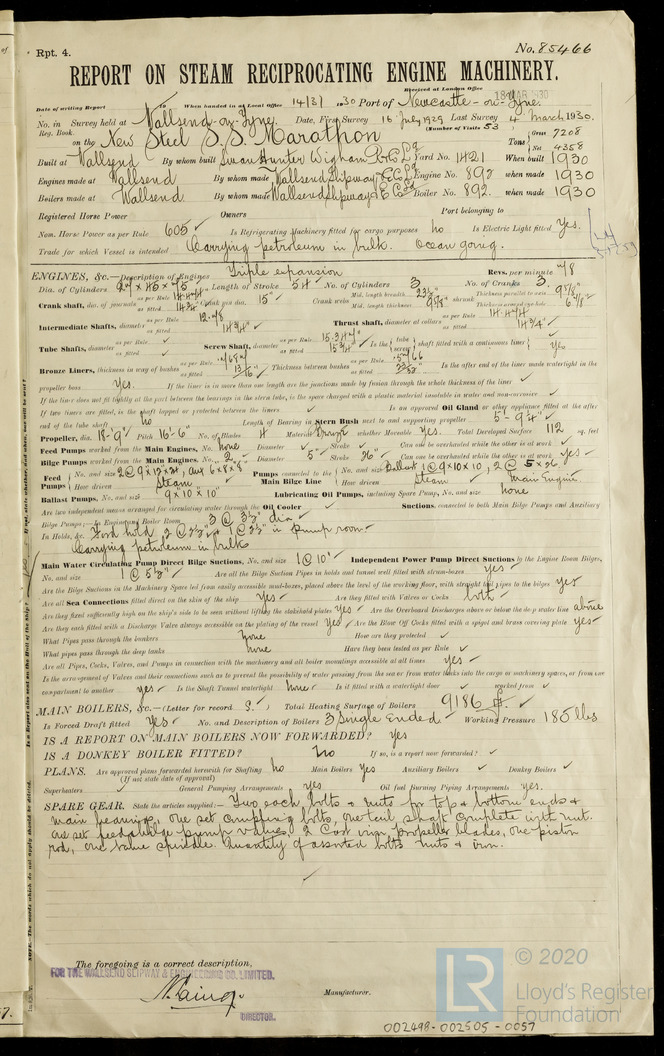 Rpt. 4.
No. 85466
REPORT ON STEAM RECIPROCATING ENGINE MACHINERY.
Received at London Office 18 MAR 1930
Date of writing Report When handed in at Local Office 14/3/1930 Port of Newcastle-on-Tyne.
No. in Survey held at Wallsend-on-Tyne. Date, First Survey 16 July 1929 Last Survey 4 March 1930.
Reg. Book. (Number of Visits 53)
on the New Steel S.S. Marathon Tons Gross 7208 Net 4358
Built at Wallsend By whom built Swan Hunter Wigham R & Co Ld Yard No. 1421 When built 1930
Engines made at Wallsend By whom made Wallsend Slipway & E Co Ld Engine No. 892 when made 1930
Boilers made at Wallsend By whom made Wallsend Slipway & E Co Ld Boiler No. 892. when made 1930
Registered Horse Power Owners Port belonging to
Nom. Horse Power as per Rule 605 Is Refrigerating Machinery fitted for cargo purposes no Is Electric Light fitted Yes.
Trade for which Vessel is intended Carrying petroleum in bulk. Ocean going.
ENGINES, &c.—Description of Engines Triple expansion Revs. per minute 78
Dia. of Cylinders 27" × 45 × 75 Length of Stroke 54 No. of Cylinders 3 No. of Cranks 3.
Crank shaft, dia. of journals as per Rule as fitted 14¾" Crank pin dia. 15" Crank webs Mid. length breadth Mid. length thickness 9⅝" shrunk Thickness parallel to axis 9⅝" Thickness around eye-hole
Intermediate Shafts, diameter as per Rule 12.78 as fitted 14¾" Thrust shaft, diameter at collars as per Rule as fitted 14¾"
Tube Shafts, diameter as per Rule as fitted Screw Shaft, diameter as per Rule as fitted 15¾" Is the tube screw shaft fitted with a continuous liner Yes
Bronze Liners, thickness in way of bushes as per Rule as fitted Thickness between bushes as per Rule as fitted Is the after end of the liner made watertight in the
propeller boss Yes. If the liner is in more than one length are the junctions made by fusion through the whole thickness of the liner
If the liner does not fit tightly at the part between the bearings in the stern tube, is the space charged with a plastic material insoluble in water and non-corrosive
If two liners are fitted, is the shaft lapped or protected between the liners Is an approved Oil Gland or other appliance fitted at the after
end of the tube shaft no Length of Bearing in Stern Bush next to and supporting propeller 5'-9¼"
Propeller, dia. 18'-9" Pitch 16'-6" No. of Blades 4 Material Bronze whether Moveable Yes. Total Developed Surface 112 sq. feet
Feed Pumps worked from the Main Engines, No. none Diameter Stroke Can one be overhauled while the other is at work
Bilge Pumps worked from the Main Engines, No. 2 Diameter 5" Stroke 26" Can one be overhauled while the other is at work yes
Feed Pumps No. and size 2 @ 9×12×24, aux 6×8×8 How driven Steam Pumps connected to the Main Bilge Line No. and size Ballast 1 @ 9×10×10, 2 @ 5×26 How driven Steam Main Engine
Ballast Pumps, No. and size 9×10×10" Lubricating Oil Pumps, including Spare Pump, No. and size none
Are two independent means arranged for circulating water through the Oil Cooler Suctions, connected to both Main Bilge Pumps and Auxiliary
Bilge Pumps:—In Engine and Boiler Room 3 @ 3½" dia
In Holds, &c. Ford hold 2 @ 2½" 1 @ 2½" in pump room
Carrying petroleum in bulk
Main Water Circulating Pump Direct Bilge Suctions, No. and size 1 @ 10" Independent Power Pump Direct Suctions to the Engine Room Bilges,
No. and size 1 @ 5½" Are all the Bilge Suction Pipes in holds and tunnel well fitted with strum-boxes yes
Are the Bilge Suctions in the Machinery Spaces led from easily accessible mud-boxes, placed above the level of the working floor, with straight tail pipes to the bilges yes
Are all Sea Connections fitted direct on the skin of the ship Yes Are they fitted with Valves or Cocks both
Are they fixed sufficiently high on the ship's side to be seen without lifting the stokehold plates Yes Are the Overboard Discharges above or below the deep water line above
Are they each fitted with a Discharge Valve always accessible on the plating of the vessel Yes Are the Blow Off Cocks fitted with a spigot and brass covering plate Yes
What Pipes pass through the bunkers none How are they protected
What pipes pass through the deep tanks none Have they been tested as per Rule
Are all Pipes, Cocks, Valves, and Pumps in connection with the machinery and all boiler mountings accessible at all times yes
Is the arrangement of Valves and their connections such as to prevent the possibility of water passing from the sea or from water tanks into the cargo or machinery spaces, or from one
compartment to another yes Is the Shaft Tunnel watertight none Is it fitted with a watertight door worked from
MAIN BOILERS, &c.—(Letter for record S.) Total Heating Surface of Boilers 9186
Is Forced Draft fitted Yes No. and Description of Boilers 3 Single Ended Working Pressure 185 lbs
IS A REPORT ON MAIN BOILERS NOW FORWARDED? yes
IS A DONKEY BOILER FITTED? no If so, is a report now forwarded?
PLANS. Are approved plans forwarded herewith for Shafting no Main Boilers yes Auxiliary Boilers Donkey Boilers
(If not state date of approval)
Superheaters General Pumping Arrangements yes Oil fuel Burning Piping Arrangements yes.
SPARE GEAR. State the articles supplied:— Two each bolts & nuts for top & bottom ends &
main bearings, one set coupling bolts, one tail shaft complete with nut.
one set feed & bilge pump valves, 2 Cast iron propeller blades, one piston
rod, one valve spindle. Quantity of assorted bolts nuts & iron.
The foregoing is a correct description,
FOR THE WALLSEND SLIPWAY & ENGINEERING CO. LIMITED.
Manufacturer.
DIRECTOR.
© 2020
LR
Lloyd's Register
Foundation
002498-002505-0057